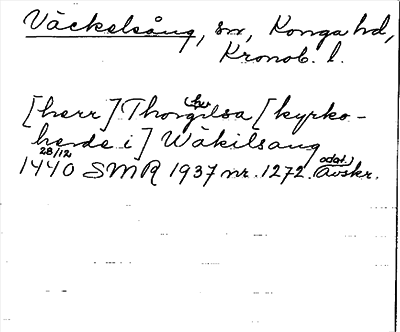 Väckelsång, sn, Konga hd,
Kronob. l.
[herr] Thorgilsa [kyrko-
herde i] Wäkilsang
28/12
1440 SMR 1937 nr. 1272. odat. Avskr.